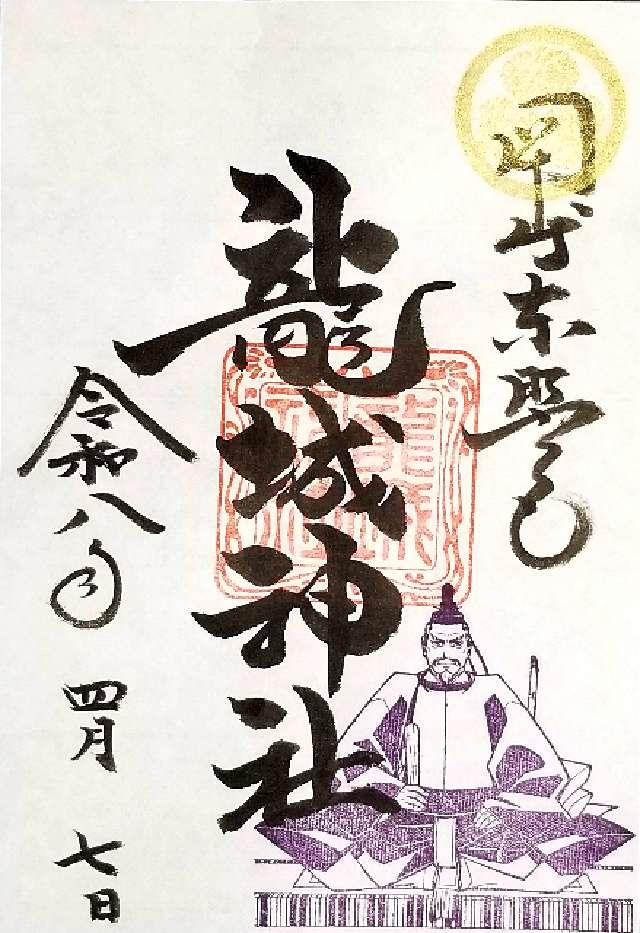 岡崎東照宮
龍城神社
令和八年 四月 七日